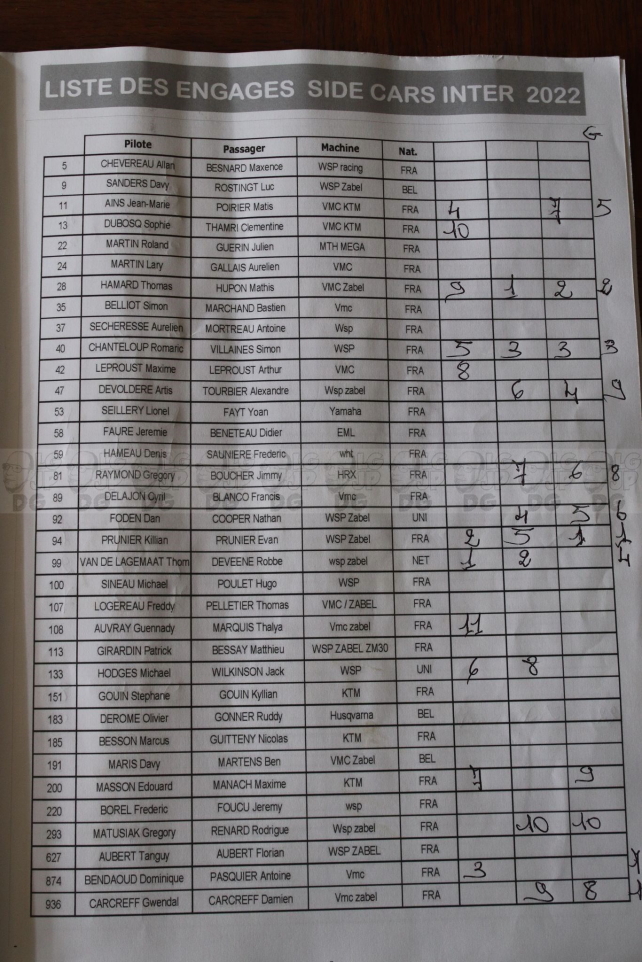 LISTE DES ENGAGES SIDE CARS INTER 2022
G
Pilote Passager Machine Nat.
5 CHEVEREAU Allan BESNARD Maxence WSP racing FRA
9 SANDERS Davy ROSTINGT Luc WSP Zabel BEL
11 AINS Jean-Marie POIRIER Matis VMC KTM FRA 4 7 5
13 DUBOSQ Sophie THAMRI Clementine VMC KTM FRA 10
22 MARTIN Roland GUERIN Julien MTH MEGA FRA
24 MARTIN Lary GALLAIS Aurelien VMC FRA
28 HAMARD Thomas HUPON Mathis VMC Zabel FRA 9 1 2 2
35 BELLIOT Simon MARCHAND Bastien Vmc FRA
37 SECHERESSE Aurelien MORTREAU Antoine Wsp FRA
40 CHANTELOUP Romaric VILLAINES Simon WSP FRA 5 3 3 3
42 LEPROUST Maxime LEPROUST Arthur VMC FRA 8
47 DEVOLDERE Artis TOURBIER Alexandre Wsp zabel FRA 6 4 9
53 SEILLERY Lionel FAYT Yoan Yamaha FRA
58 FAURE Jeremie BENETEAU Didier EML FRA
59 HAMEAU Denis SAUNIERE Frederic wht FRA
81 RAYMOND Gregory BOUCHER Jimmy HRX FRA 7 6 8
89 DELAJON Cyril BLANCO Francis Vmc FRA
92 FODEN Dan COOPER Nathan WSP Zabel UNI 4 5 6
94 PRUNIER Killian PRUNIER Evan WSP Zabel FRA 2 5 1
99 VAN DE LAGEMAAT Thom DEVEENE Robbe wsp zabel NET 1 2
100 SINEAU Michael POULET Hugo WSP FRA
107 LOGEREAU Freddy PELLETIER Thomas VMC / ZABEL FRA
108 AUVRAY Guennady MARQUIS Thalya Vmc zabel FRA 11
113 GIRARDIN Patrick BESSAY Matthieu WSP ZABEL ZM30 FRA
133 HODGES Michael WILKINSON Jack WSP UNI 6 8
151 GOUIN Stephane GOUIN Kyllian KTM FRA
183 DEROME Olivier GONNER Ruddy Husqvarna BEL
185 BESSON Marcus GUITTENY Nicolas KTM FRA
191 MARIS Davy MARTENS Ben VMC Zabel BEL
200 MASSON Edouard MANACH Maxime KTM FRA 7 9
220 BOREL Frederic FOUCU Jeremy wsp FRA
293 MATUSIAK Gregory RENARD Rodrigue Wsp zabel FRA 10 10
627 AUBERT Tanguy AUBERT Florian WSP ZABEL FRA
874 BENDAOUD Dominique PASQUIER Antoine Vmc FRA 3
936 CARCREFF Gwendal CARCREFF Damien Vmc zabel FRA 9 8